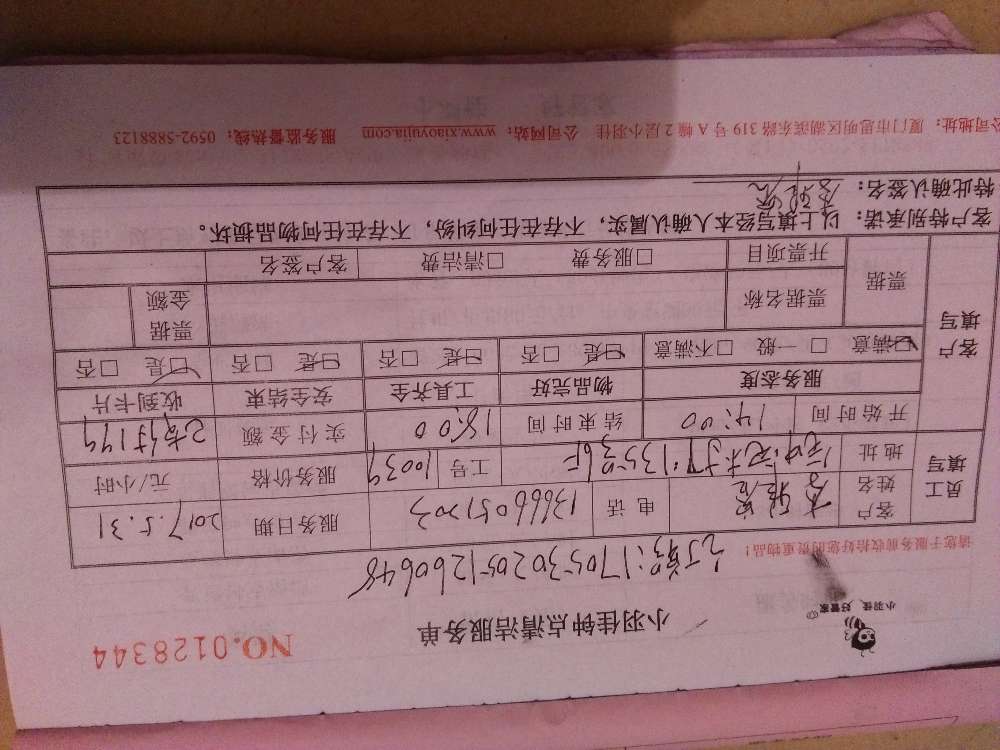 小羽佳 好管家
小羽佳钟点清洁服务单
NO.0128344
请您于服务前收拾好您的贵重物品!
17053020051260648
员工填写
客户姓名 电话 13666051203 服务日期 2017.5.31
地址 工号 10039 服务价格 元/小时
开始时间 14:00 结束时间 18:00 实付金额 已支付149
客户填写
服务态度 物品完好 工具齐全 安全结束 收到卡片
☑满意 □一般 □不满意 ☑是 □否 ☑是 □否 ☑是 □否 ☑是 □否
票据 票据名称 票据金额
开票项目 □服务费 □清洁费 客户签名
客户特别承诺:以上填写经本人确认属实,不存在任何纠纷,不存在任何物品损坏。
特此确认签名:
公司地址:厦门市思明区湖滨东路 319 号 A 幢 2 层小羽佳 公司网站:www.xiaoyujia.com 服务监督热线:0592-5888123